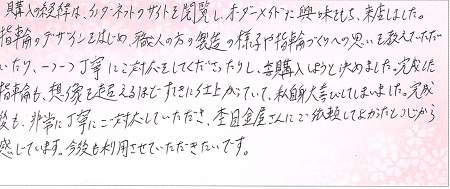 購入の経緯は、インターネットのサイトを閲覧し、オーダーメイドに興味をもち、来店しました。
指輪のデザインをはじめ、職人の方の製造の様子や指輪づくりへの思いを教えていただ
いたり、一つ一つ丁寧にご対応をしてくださったりし、購入しようと決めました。完成した
指輪も、想像を超えるほどすてきに仕上がっていて、私自身大喜びしてしまいました。完成
後も、非常に丁寧にご対応していただき、杢目金屋さんにご依頼してよかったと心から
感じています。今後も利用させていただきたいです。